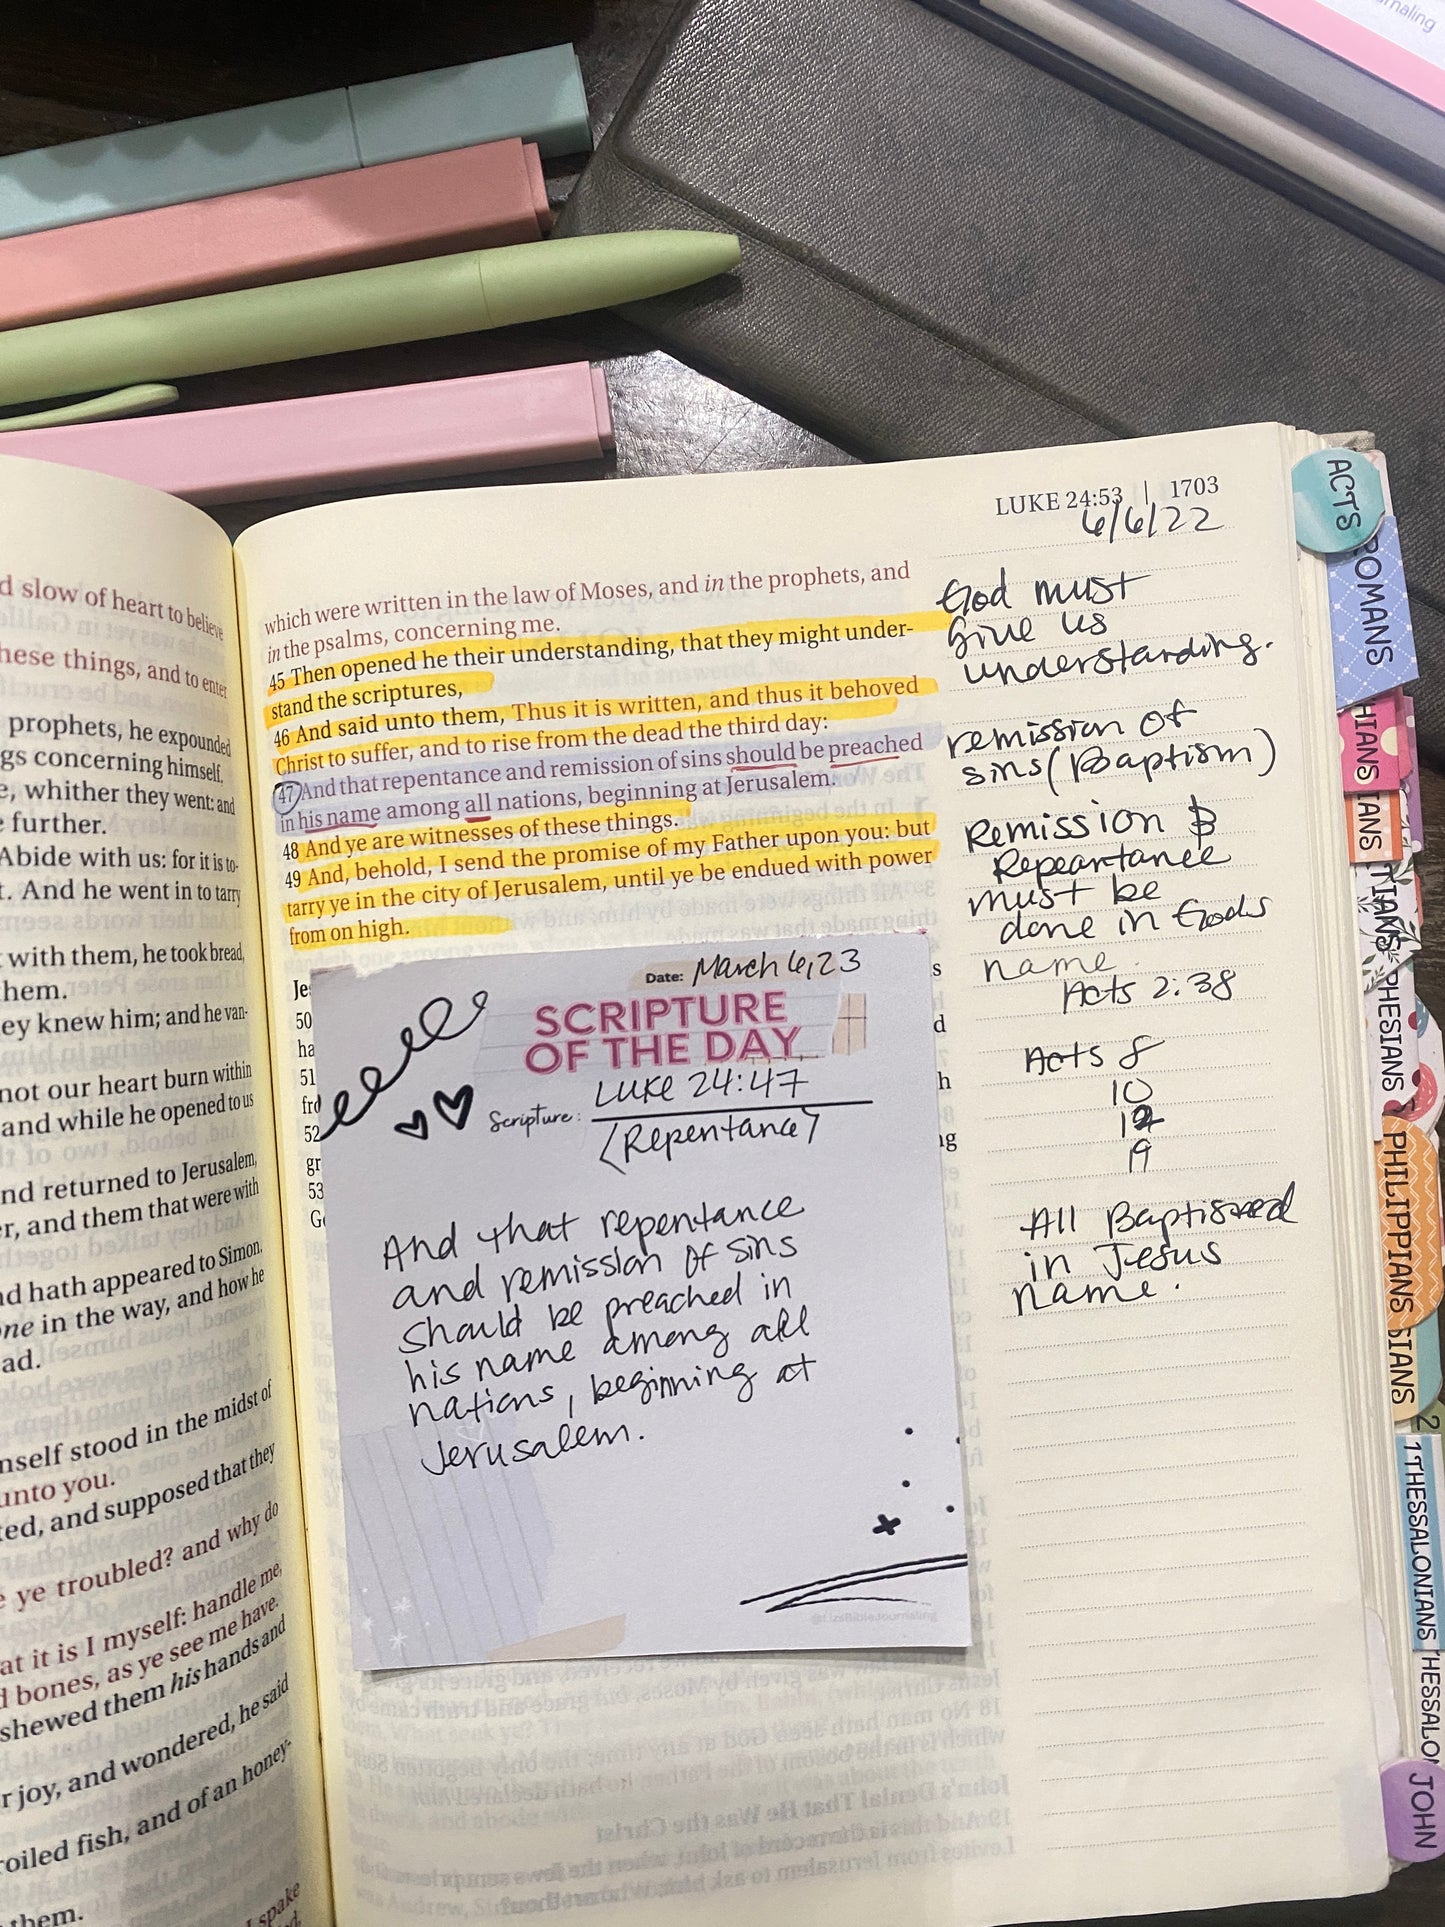 rnaling
d slow of heart to believe
hese things, and to enter
prophets, he expounded
gs concerning himself.
e, whither they went: and
e further.
Abide with us: for it is to-
t. And he went in to tarry
with them, he took bread,
hem.
ey knew him; and he van-
not our heart burn within
and while he opened to us
nd returned to Jerusalem,
r, and them that were with
nd hath appeared to Simon.
one in the way, and how he
ad.
mself stood in the midst of
unto you.
ted, and supposed that they
e ye troubled? and why do
at it is I myself: handle me,
d bones, as ye see me have.
shewed them his hands and
r joy, and wondered, he said
roiled fish, and of an honey-
them.
spake
LUKE 24:53 | 1703
6/6/22
which were written in the law of Moses, and in the prophets, and
in the psalms, concerning me.
45 Then opened he their understanding, that they might under-
stand the scriptures,
46 And said unto them, Thus it is written, and thus it behoved
Christ to suffer, and to rise from the dead the third day:
47 And that repentance and remission of sins should be preached
in his name among all nations, beginning at Jerusalem.
48 And ye are witnesses of these things.
49 And, behold, I send the promise of my Father upon you: but
tarry ye in the city of Jerusalem, until ye be endued with power
from on high.
Je
50
ha
51
fro
52
gr
53
Go
s
d
h
ng
Date: March 6, 23
SCRIPTURE
OF THE DAY
Scripture: Luke 24:47
(Repentance)
And that repentance
and remission of sins
should be preached in
his name among all
nations, beginning at
Jerusalem.
@LizsBibleJournaling
God must
give us
understanding.
remission of
sins (Baptism)
Remission &
Repeantance
must be
done in Gods
name.
Acts 2:38
Acts 8
10
19
All Baptised
in Jesus
name.
ACTS
ROMANS
HIANS
IANS
TIANS
PHESIANS
PHILIPPIANS
SIANS
1 THESSALONIANS
2
HESSALON
JOHN